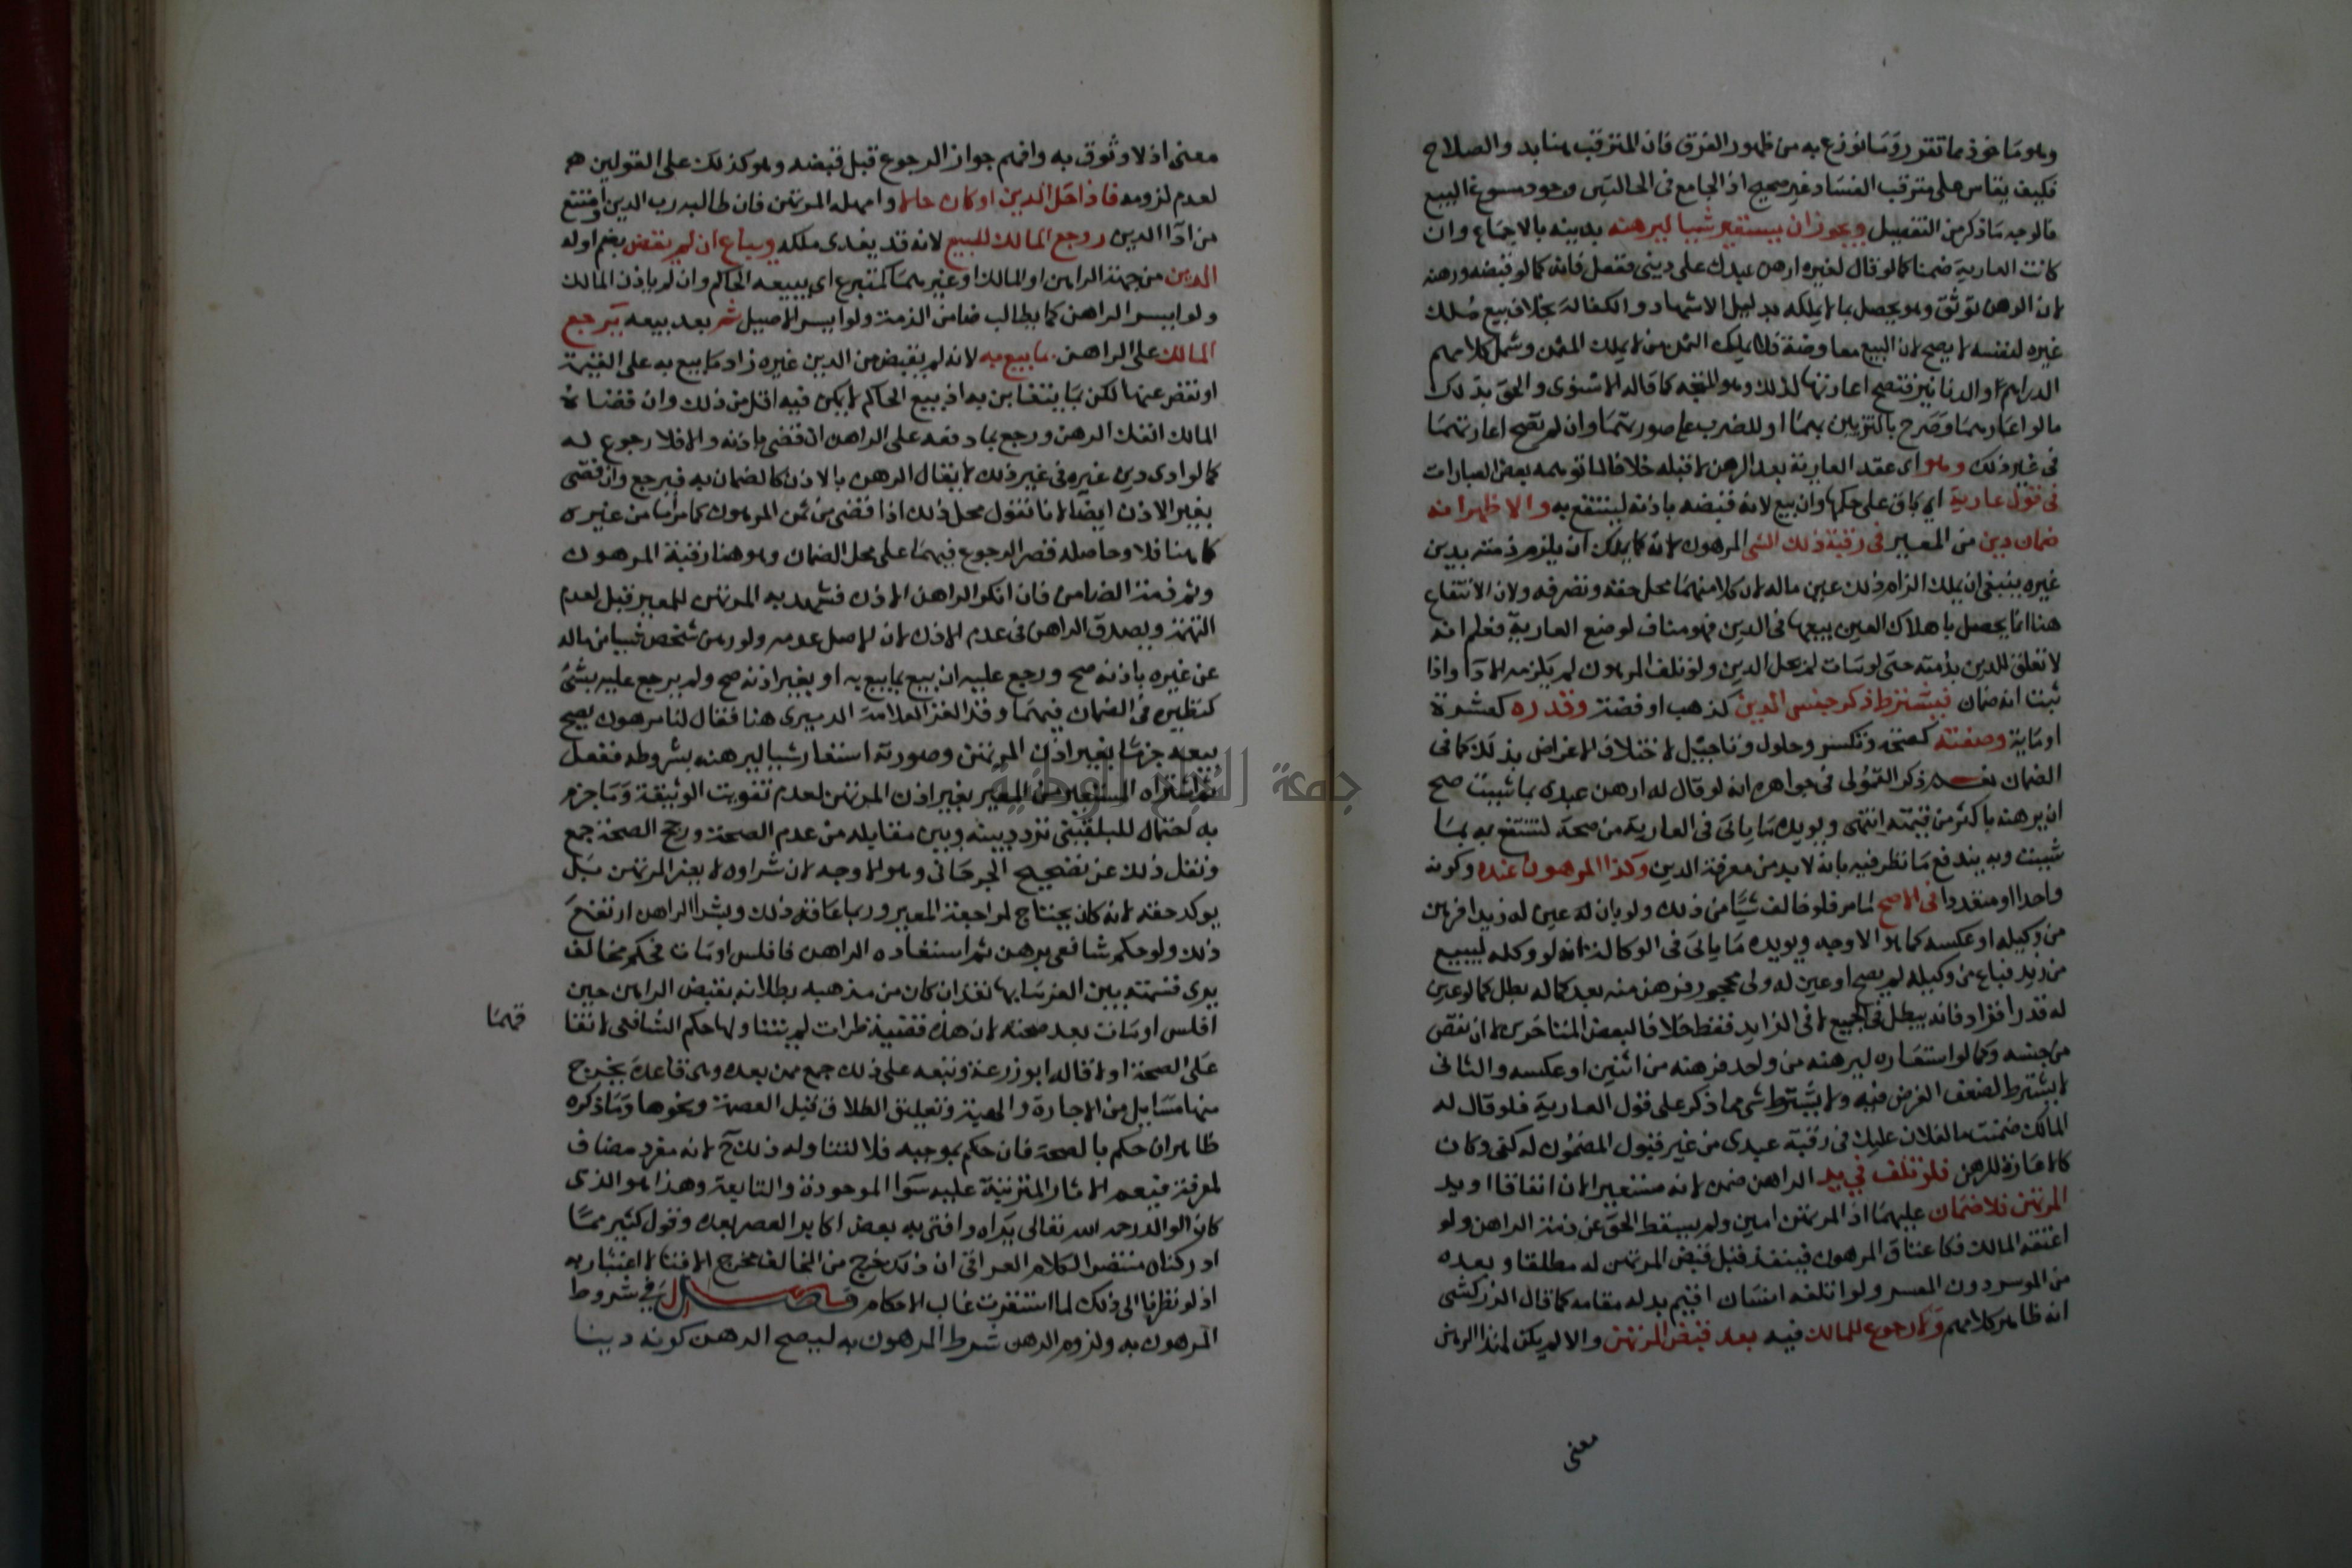 وهو ماخوذ مما تقرر وما نوزع به من ظهور الفرق فان المترقب هنا بدو الصلاح
فكيف يقاس على مترقب الفساد غير صحيح اذ الجامع في الحالتين وجود مسوغ البيع
فالوجه ما ذكر من التفصيل ويجوز ان يستعير شيا ليرهنه بدينه بالاجماع وان
كانت العارية ضمنا كما لو قال لغيره ارهن عبدك على ديني ففعل فانه كما لو قبضه ورهنه
لان الرهن توثق وهو يحصل بما لا يملكه بدليل الاشهاد والكفالة بخلاف بيع ملك
غيره لنفسه لا يصح لان البيع معاوضة فلا يملك الثمن من لا يملك المثمن وشمل كلامهم
الدراهم او الدنانير فتصح اعارتها لذلك وهو المتجه كما قاله الاسنوى والحق بذلك
ما لو اعارهما وصرح بالتزيين بهما او للضرب على صورتهما وان لم تصح اعارتهما
في غير ذلك وهو اى عقد العارية بعد الرهن لا قبله خلافا لما توهمه بعض العبارات
في قول عارية اي باق على حكمها وان بيع لانه قبضه باذنه لينتفع به والاظهر انه
ضمان دين من المعير في رقبة ذلك الشي المرهون لانه كما يملك ان يلزم ذمته بدين
غيره ينبغي ان يملك الزام ذلك عين ماله لان كلا منهما محل حقه وتصرفه ولان الانتفاع
هنا انما يحصل باهلاك العين ببيعها في الدين فهو مناف لوضع العارية فعلم انه
لا تعلق للدين بذمته حتى لو مات لم يحل الدين ولو تلف المرهون لم يلزمه الادا واذا
ثبت انه ضمان فيشترط ذكر جنس الدين كذهب او فضة وقدره كعشرة
او ماية وصفته كصحة وتكسر وحلول وتاجيل لاختلاف الاغراض بذلك كما في
الضمان نعم ذكر القمولي في جواهره انه لو قال له ارهن عبدى بما شيت صح
ان يرهنه باكثر من قيمته انتهى ويويده ما ياتى فى العارية من صحة لتنتفع به بما
شيت وبه يندفع ما نظر فيه بانه لا بد من معرفة الدين وكذا المرهون عنده وكونه
واحدا او متعددا في الاصح لما مر فلو خالف شيا من ذلك ولو بان له عين له زيدا فرهن
من وكيله او عكسه كما هو الاوجه ويويده ما ياتى في الوكالة انه لو وكله ليبيع
من زيد فباع من وكيله لم يصح او عين له ولى محجور فرهن منه بعد كماله بطل كما لو عين
له قدرا فزاد فانه يبطل في الجميع لا في الزايد فقط خلافا لبعض المتاخرين لا ان نقص
من جنسه وكما لو استعاره ليرهنه من واحد فرهنه من اثنين او عكسه والثانى
لا يشترط لضعف الغرض فيه ولا يشترط شي مما ذكر على قول العارية فلو قال له
المالك ضمنت ما لفلان عليك في رقبة عبدى من غير قبول المضمون له كفى وكان
كالاعارة للرهن فلو تلف في يد الراهن ضمن لانه مستعير الان اتفاقا او يد
المرتهن فلا ضمان عليهما اذ المرتهن امين ولم يسقط الحق عن ذمة الراهن ولو
اعتقه المالك فكاعتاق المرهون فينفذ قبل قبض المرتهن له مطلقا وبعده
من الموسر دون المعسر ولو اتلفه انسان اقيم بدله مقامه كما قال الزركشي
انه ظاهر كلامهم ولا رجوع للمالك فيه بعد قبض المرتهن والا لم يكن لهذا الرهن
معنى
معنى اذ لا وثوق به وافهم جواز الرجوع قبل قبضه وهو كذلك على القولين هم
لعدم لزومه فاذا حل الدين او كان حالا وامهله المرتهن فان طالبه رب الدين وامتنع
من ادا الدين روجع المالك للبيع لانه قد يفدى ملكه ويباع ان لم يقض بضم اوله
الدين من جهة الراهن او المالك او غيرهما كمتبرع اي يبيعه الحاكم وان لم ياذن المالك
ولو ايسر الراهن كما يطالب ضامن الذمة ولو ايسر الاصيل ثم بعد بيعه يرجع
المالك على الراهن بما بيع به لانه لم يقبض من الدين غيره زاد ما بيع به على القيمة
او نقض عنها لكن بما يتغابن به اذ بيع الحاكم لا يمكن فيه اقل من ذلك وان قضاه
المالك انفك الرهن ورجع بما دفعه على الراهن ان قضى باذنه والا فلا رجوع له
كما لو ادى دين غيره في غير ذلك لا يقال الرهن بالاذن كالضمان به فيرجع وان قضى
بغير الاذن ايضا لانا نقول محل ذلك اذا قضى من ثمن المرهون كما مر اما من غيره
كما هنا فلا وحاصله قصر الرجوع فيهما على محل الضمان وهو هنا رقبة المرهون
وثم ذمة الضامن فان انكر الراهن الاذن فشهد به المرتهن للمعير قبل لعدم
التهمة ويصدق الراهن في عدم الاذن لان الاصل عدمه ولو رهن شخص شيا من ماله
عن غيره باذنه صح ورجع عليه ان بيع بما بيع به او بغير اذنه صح ولم يرجع عليه بشئ
كنظيره في الضمان فيهما وقد الغز العلامة الدميرى هنا فقال لنا مرهون يصح
بيعه جزما بغير اذن المرتهن وصورته استعار شيا ليرهنه بشروطه ففعل
ثم اشتراه المستعير من المعير بغير اذن المرتهن لعدم تفويت الوثيقة وما جزم
به احتمال للبلقيني تردد بينه وبين مقابله من عدم الصحة ورجح الصحة جمع
ونقل ذلك عن تصحيح الجرجاني وهو الاوجه لان شراوه لا يضر المرتهن بل
يوكد حقه لانه كان يحتاج لمراجعة المعير وربما عاقه ذلك وبشرا الراهن ارتفع
ذلك ولو حكم شافعى برهن ثم استعاده الراهن فافلس او مات فحكم مخالف
يرى قسمته بين الغرما بها نفذ ان كان من مذهبه بطلانه بقبض الراهن حين
افلس او مات بعد صحته لان هذه قضية طرات لم يتناولها حكم الشافعى لانها
قهما
على الصحة اولا قاله ابو زرعة وتبعه على ذلك جمع ممن بعده وهى قاعدة يخرج
منها مسايل من الاجارة والهبة وتعليق الطلاق قبل العصمة ونحوها وما ذكره
ظاهر ان حكم بالصحة فان حكم بموجبه فلا لتناوله ذلك ح لانه مفرد مضاف
لمعرفة فيعم الاثار المترتبة عليه سوا الموجودة والتابعة وهذا هو الذى
كان الوالد رحمه الله تعالى يراه وافتى به بعض اكابر العصر بعده وقول كثير مما
ادركناه منتصر الكلام العراقى ان ذلك خرج من المخالف مخرج الافتا لا اعتبار به
اذ لو نظرنا الى ذلك لما استقرت غالب الاحكام فصل في شروط
المرهون به ولزوم الرهن شرط المرهون به ليصح الرهن كونه دينا
جامعة النجاح الوطنية